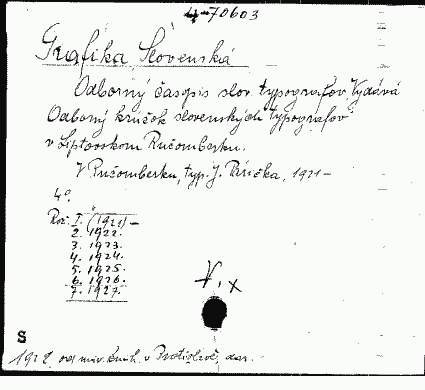 4-70603
Grafika Slovenská
Odborný časopis slov. typografov. Vydává
Odborný krúžok slovenských typografov
v Liptovskom Ružomberku.
V Ružomberku, typ. J. Párička, 1921-
4º.
Roč. I. (1921)-
2. 1922.
3. 1923.
4. 1924.
5. 1925.
6. 1926.
7. 1927.
V. x
S
1922, od univ. knih. v Bratislavě, dar.